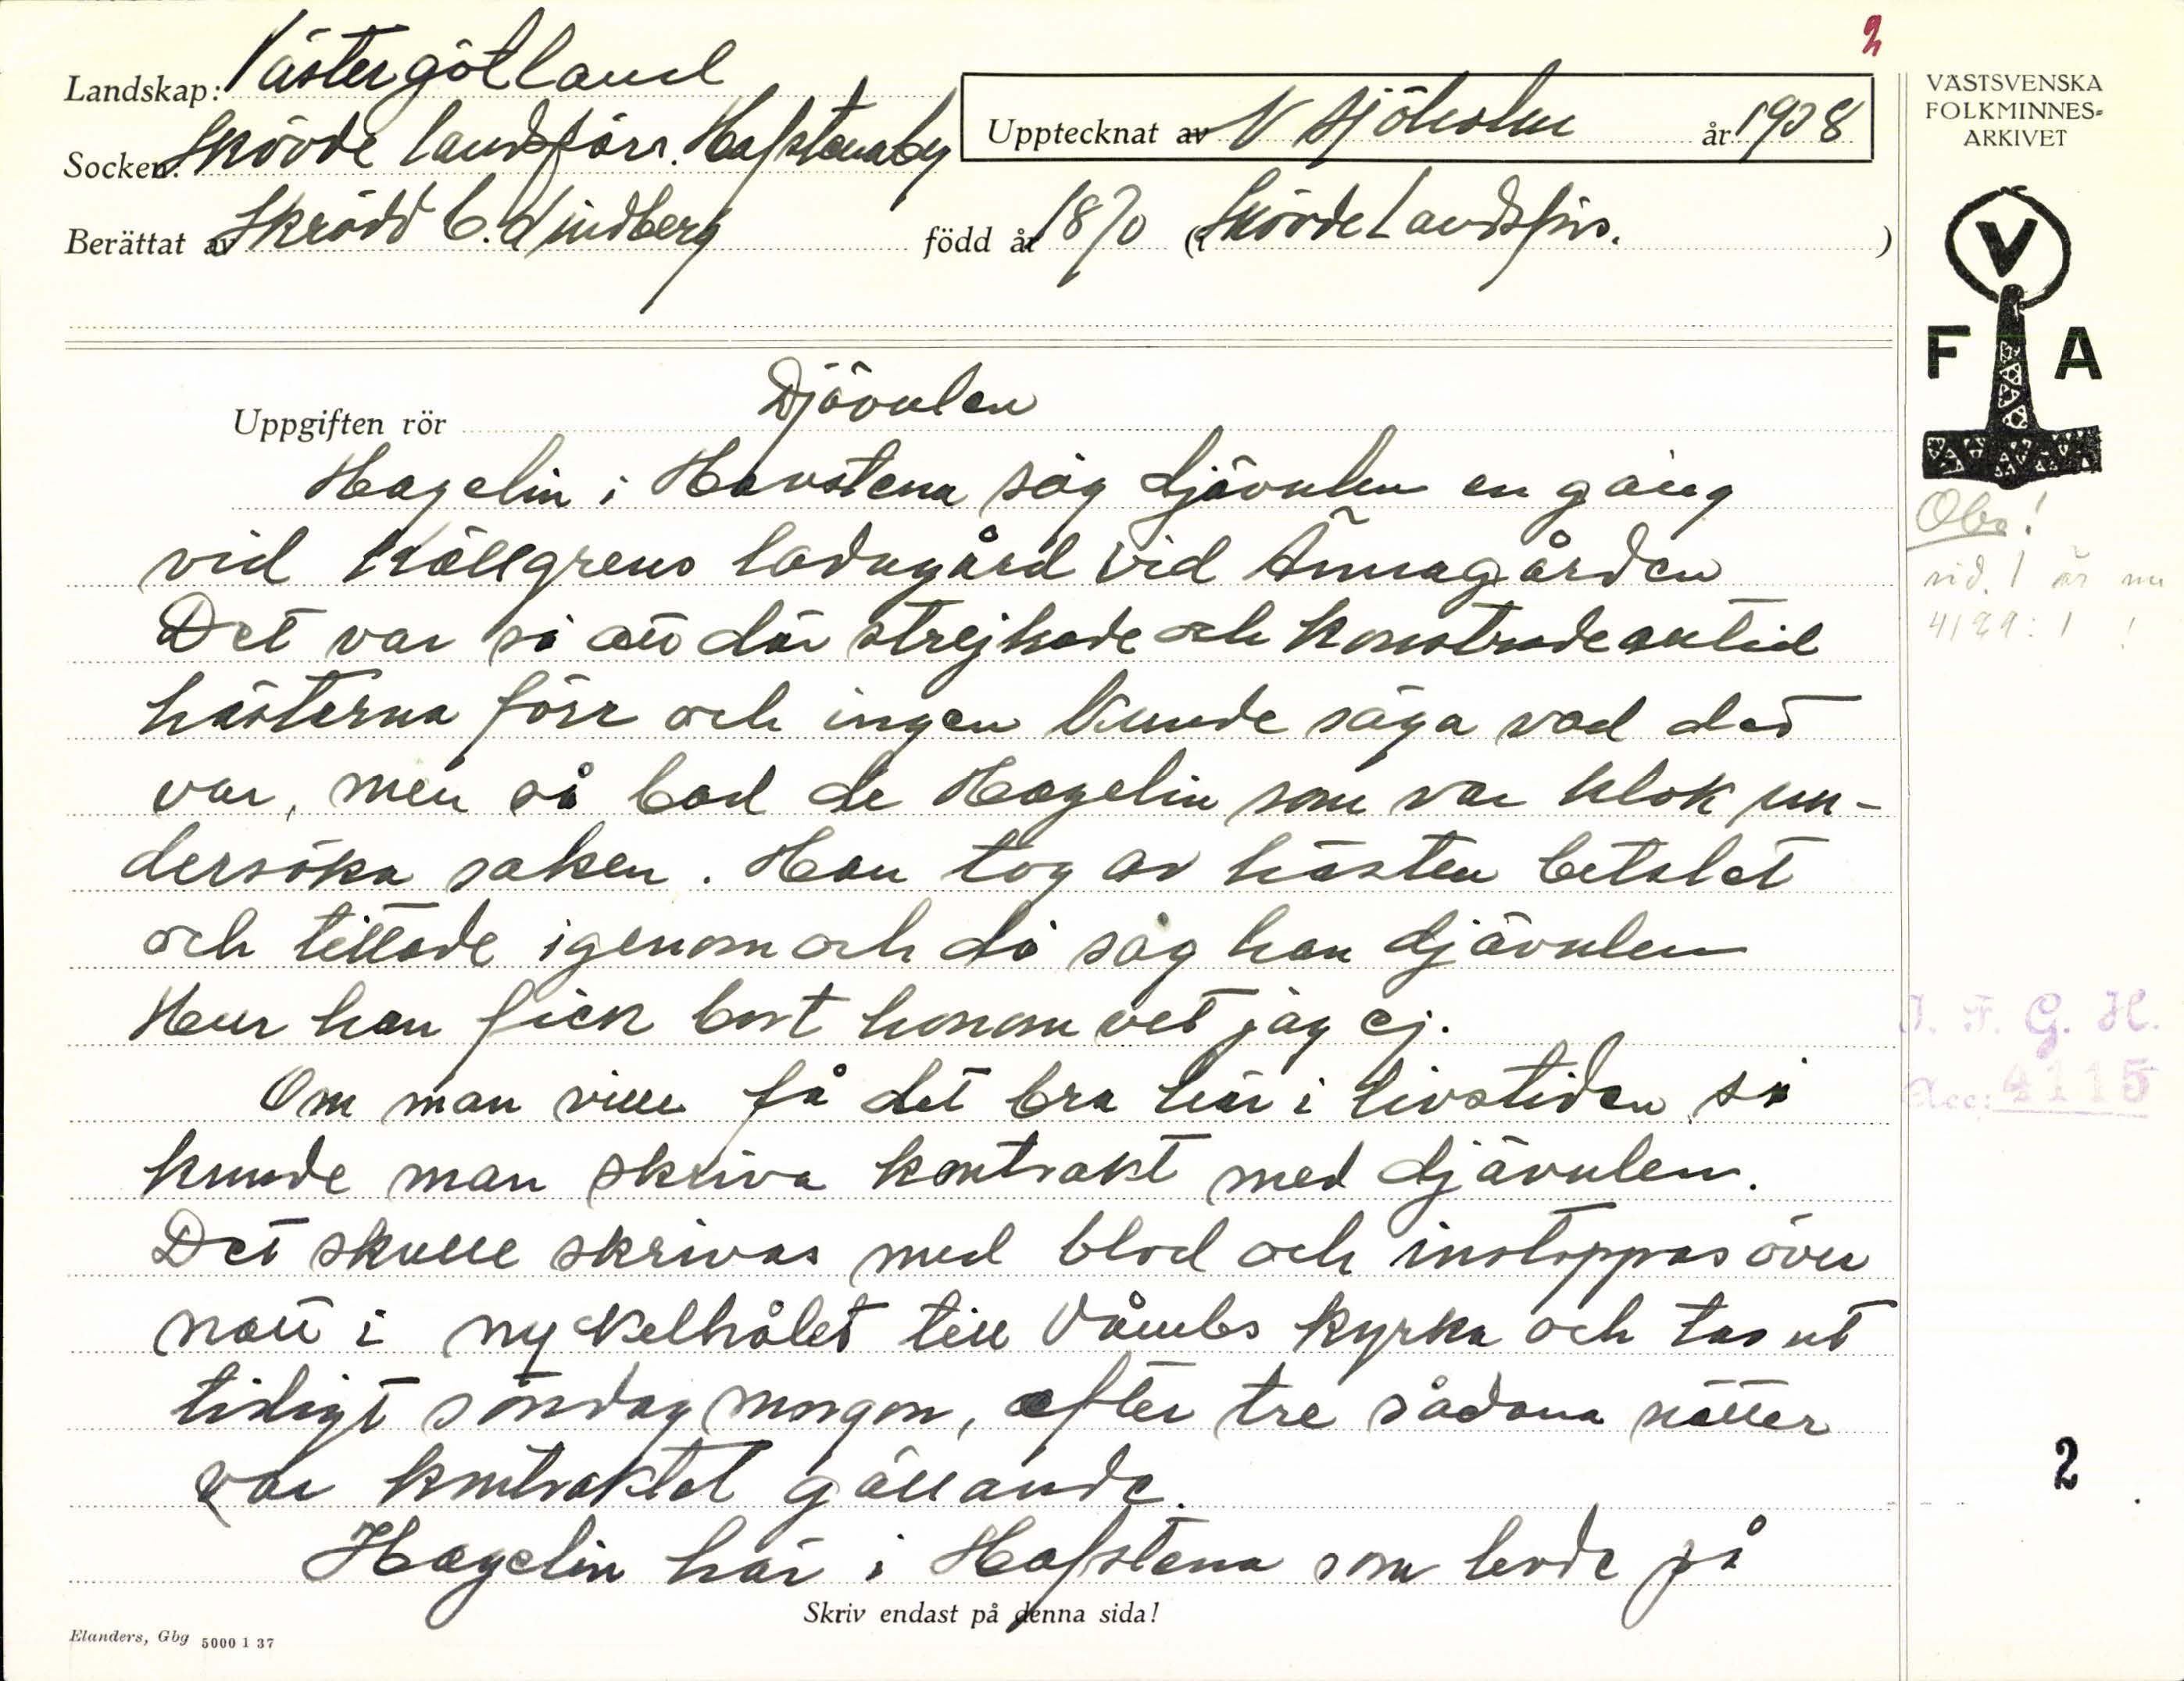 2
Landskap: Västergötland
Socken: Skövde landsförs. Hafstenaby
Upptecknat av N Sjöholm år 1938
Berättat av Skrädd C. Lindberg född år 1870 (i Skövde Landsförs. )
Uppgiften rör Djävulen
Hagelin i Havstena såg djävulen en gång
vid Källgrens ladugård vid Ännagården
Det var så att där strejkade och konstrade alltid
hästarna förr och ingen kunde säga vad det
var, men så bad de Hagelin som var klok un-
dersöka saken. Han tog av hästen betslet
och tittade igenom och då såg han djävulen
Hur han fick bort honom vet jag ej.
Om man ville få det bra här i livstiden så
kunde man skriva kontrakt med djävulen.
Det skulle skrivas med blod och instoppas över
natt i nyckelhålet till Våmbs kyrka och tas ut
tidigt söndag morgon, efter tre sådana nätter
var kontraktet gällande.
Hagelin här i Hafstena som levde på
Skriv endast på denna sida!
Elanders, Gbg 5000 1 37
VÄSTSVENSKA
FOLKMINNES-
ARKIVET
V
F A
Obs!
sid. 1 är nu
4129: 1 !
I. F. G. H.
Acc: 4115
2